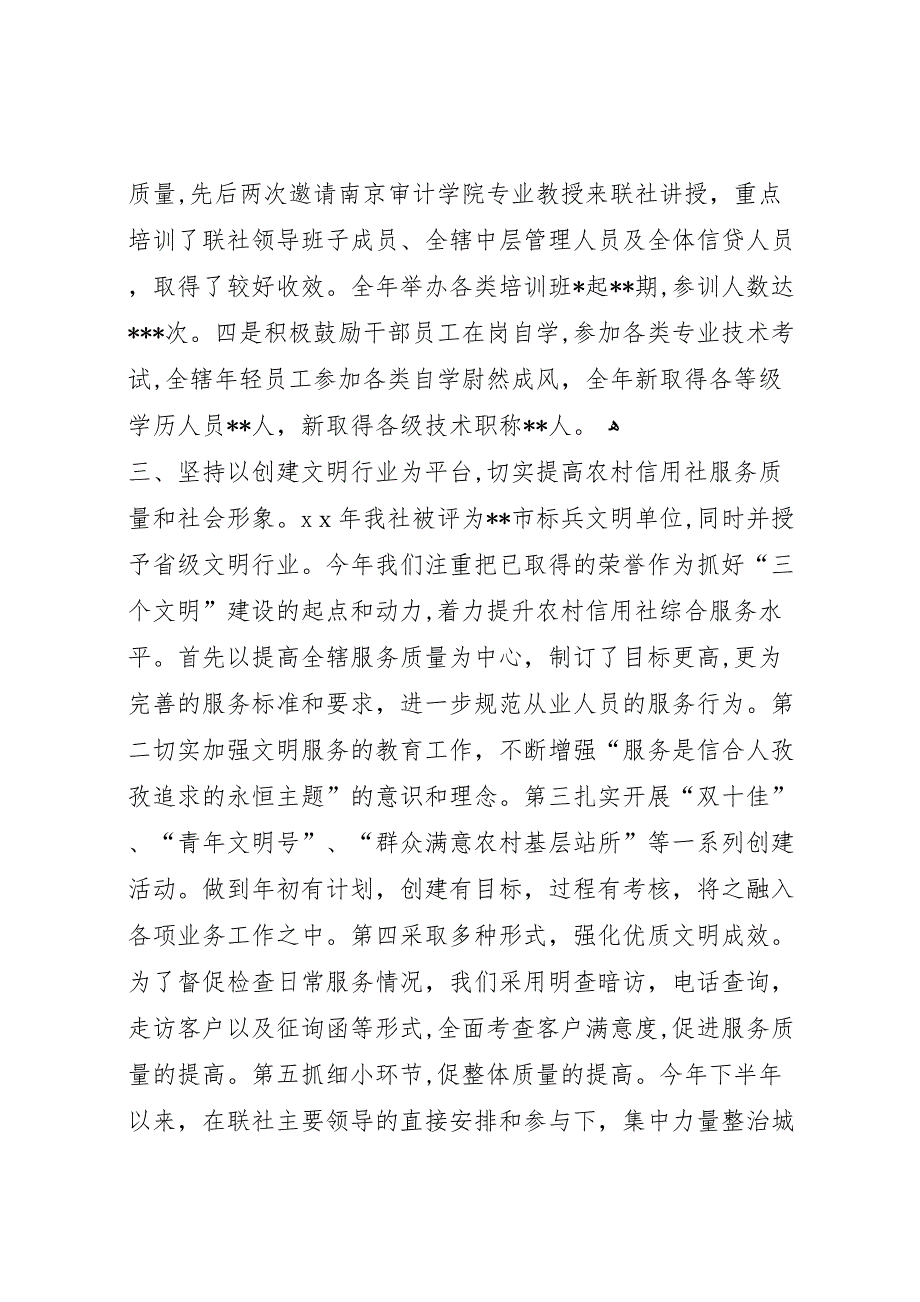 质量,先后两次邀请南京审计学院专业教授来联社讲授，重点
培训了联社领导班子成员、全辖中层管理人员及全体信贷人员
，取得了较好收效。全年举办各类培训班*起**期,参训人数达
***次。四是积极鼓励干部员工在岗自学,参加各类专业技术考
试,全辖年轻员工参加各类自学尉然成风，全年新取得各等级
学历人员**人，新取得各级技术职称**人。 ﻫ
三、坚持以创建文明行业为平台,切实提高农村信用社服务质
量和社会形象。xx年我社被评为**市标兵文明单位,同时并授
予省级文明行业。今年我们注重把已取得的荣誉作为抓好“三
个文明”建设的起点和动力,着力提升农村信用社综合服务水
平。首先以提高全辖服务质量为中心，制订了目标更高,更为
完善的服务标准和要求，进一步规范从业人员的服务行为。第
二切实加强文明服务的教育工作，不断增强“服务是信合人孜
孜追求的永恒主题”的意识和理念。第三扎实开展“双十佳”
、“青年文明号”、“群众满意农村基层站所”等一系列创建
活动。做到年初有计划，创建有目标，过程有考核，将之融入
各项业务工作之中。第四采取多种形式，强化优质文明成效。
为了督促检查日常服务情况，我们采用明查暗访，电话查询，
走访客户以及征询函等形式,全面考查客户满意度,促进服务质
量的提高。第五抓细小环节,促整体质量的提高。今年下半年
以来，在联社主要领导的直接安排和参与下，集中力量整治城